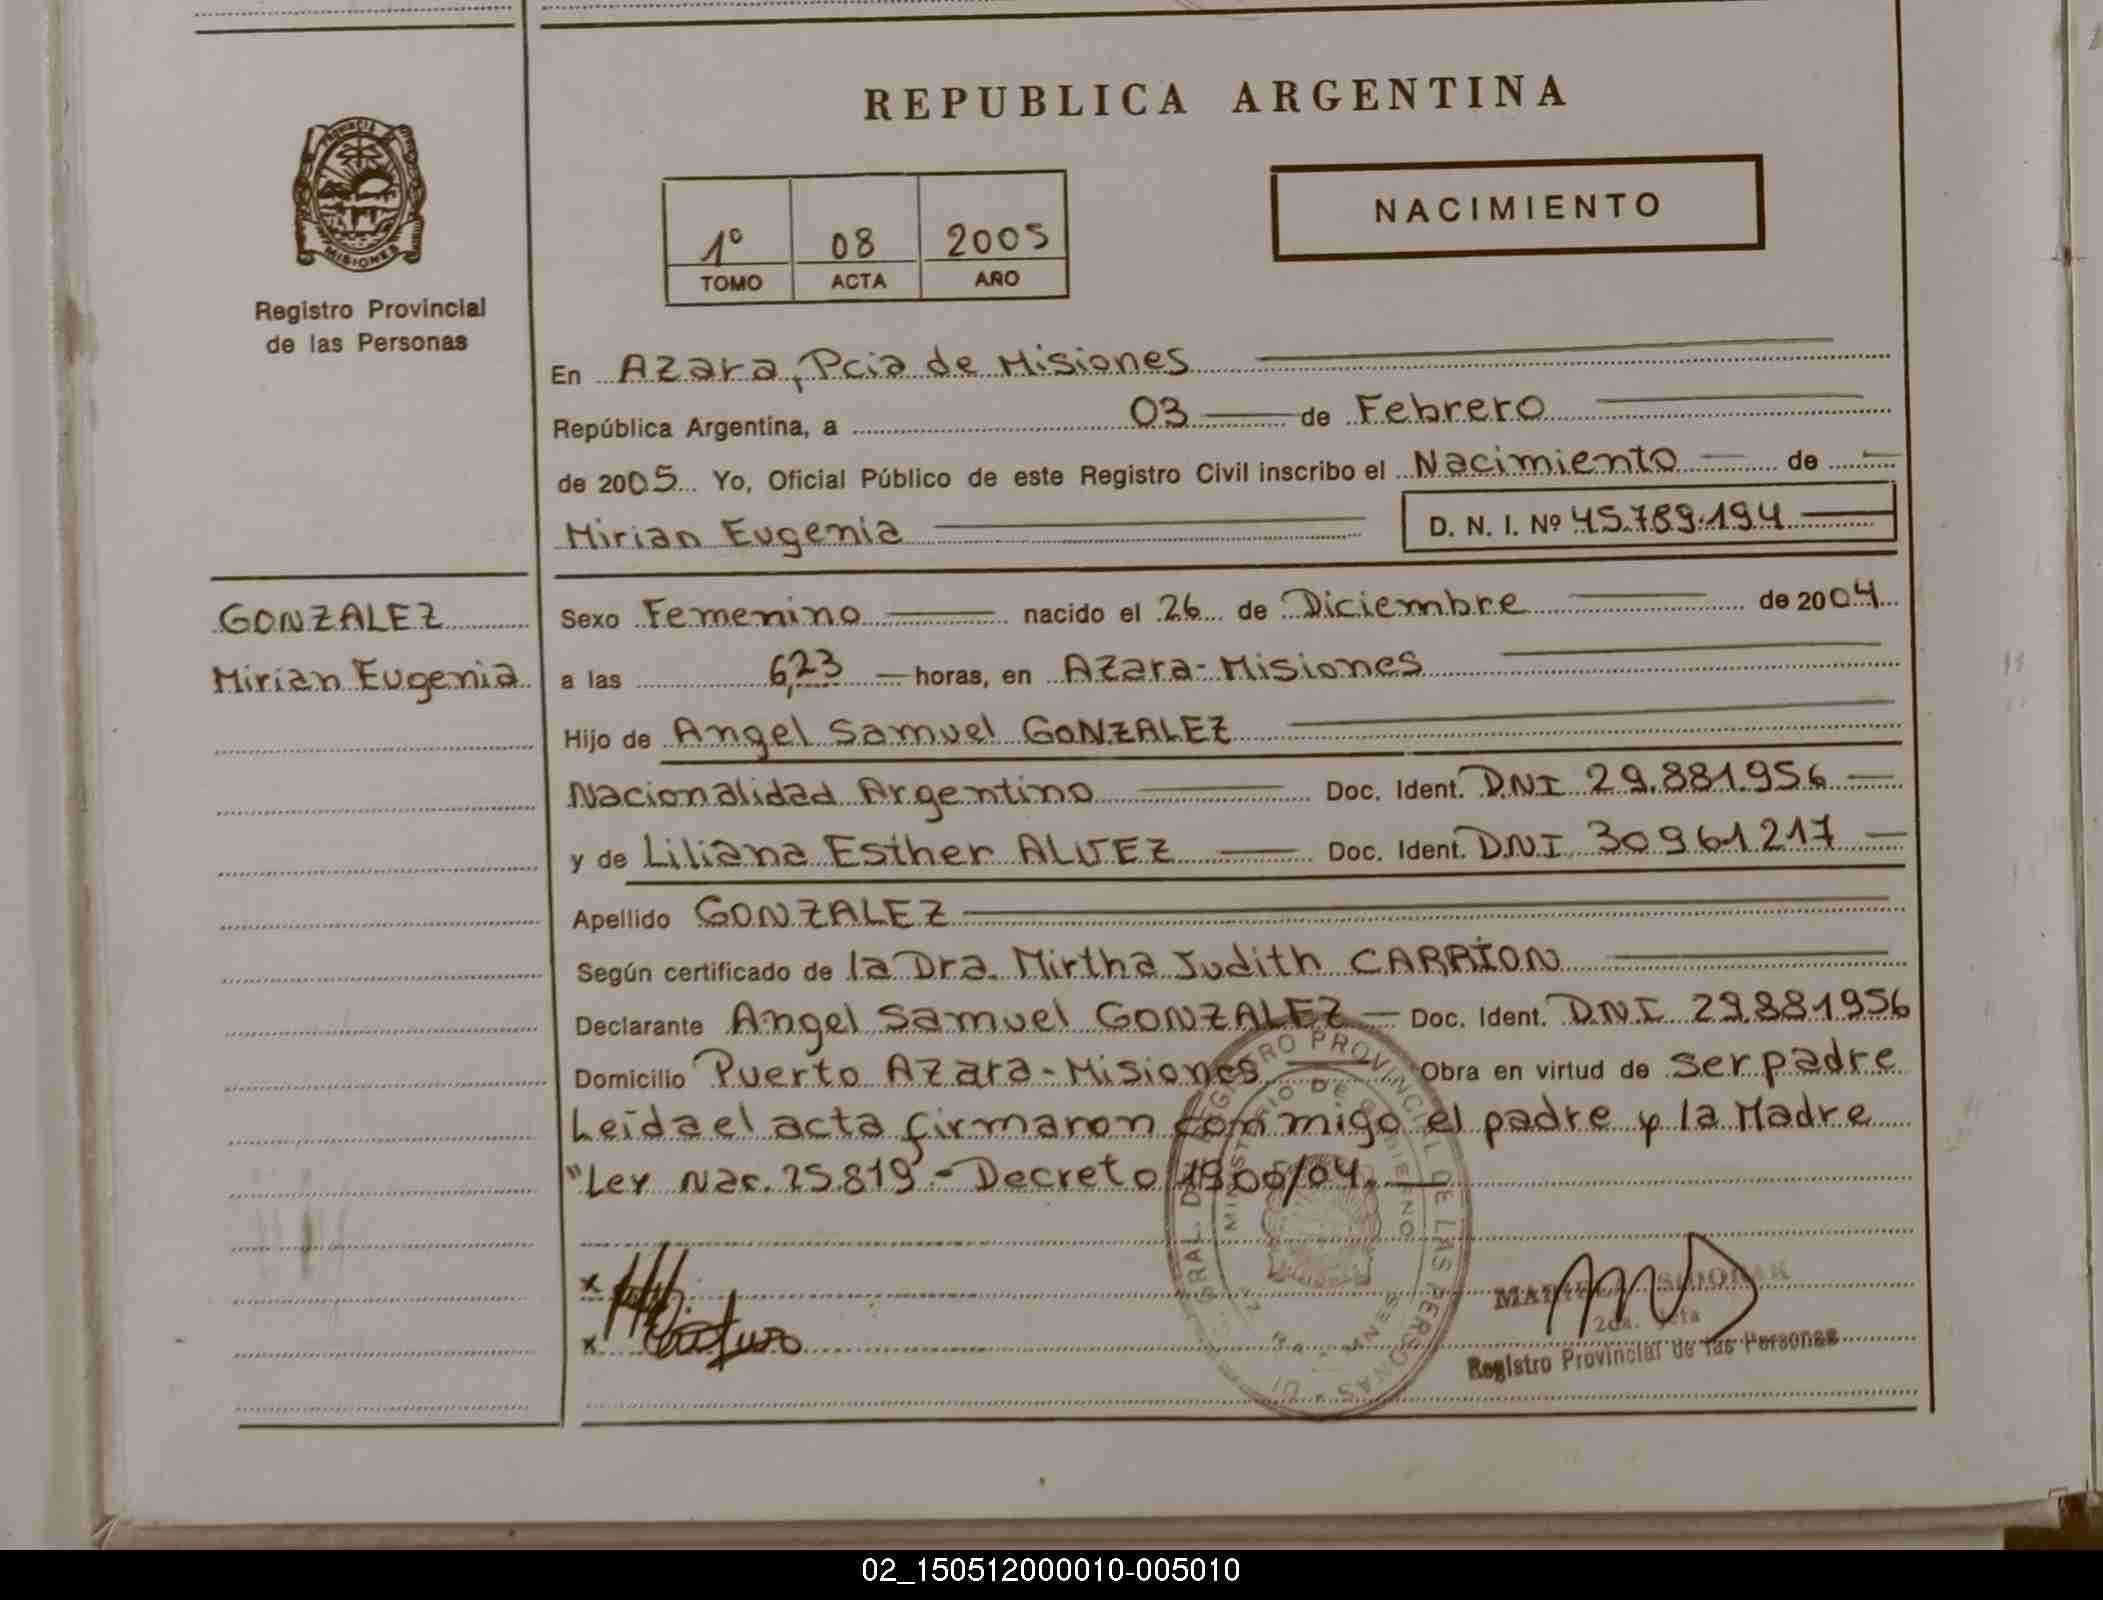 REPUBLICA ARGENTINA
PROVINCIA DE MISIONES
Registro Provincial
de las Personas
1º 08 2005
TOMO ACTA AÑO
NACIMIENTO
En Azara, Pcia de Misiones
República Argentina, a 03 de Febrero
de 2005 Yo, Oficial Público de este Registro Civil inscribo el Nacimiento de
Mirian Eugenia D. N. I. Nº 45.789.194
GONZALEZ
Mirian Eugenia
Sexo Femenino nacido el 26 de Diciembre de 2004
a las 6,23 horas, en Azara-Misiones
Hijo de Angel Samuel GONZALEZ
Nacionalidad Argentino Doc. Ident. DNI 29.881.956
y de Liliana Esther ALVEZ Doc. Ident. DNI 30961217
Apellido GONZALEZ
Según certificado de la Dra. Mirtha Judith CARRION
Declarante Angel Samuel GONZALEZ Doc. Ident. DNI 29.881956
Domicilio Puerto Azara-Misiones Obra en virtud de ser padre
Leida el acta firmaron conmigo el padre y la Madre
"Ley Nac. 25.819-Decreto 1900/04.
x
x
GRAL. DEL REGISTRO PROVINCIAL DE LAS PERSONAS
MINISTERIO DE GOBIERNO
2da. Jefa
Registro Provincial de las Personas
02_150512000010-005010